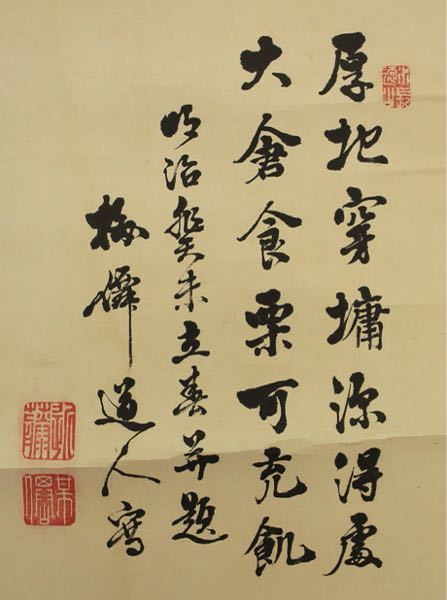 厚地穿墉深得處
大倉食粟可充飢
明治癸未立春并題
梅僊道人寫